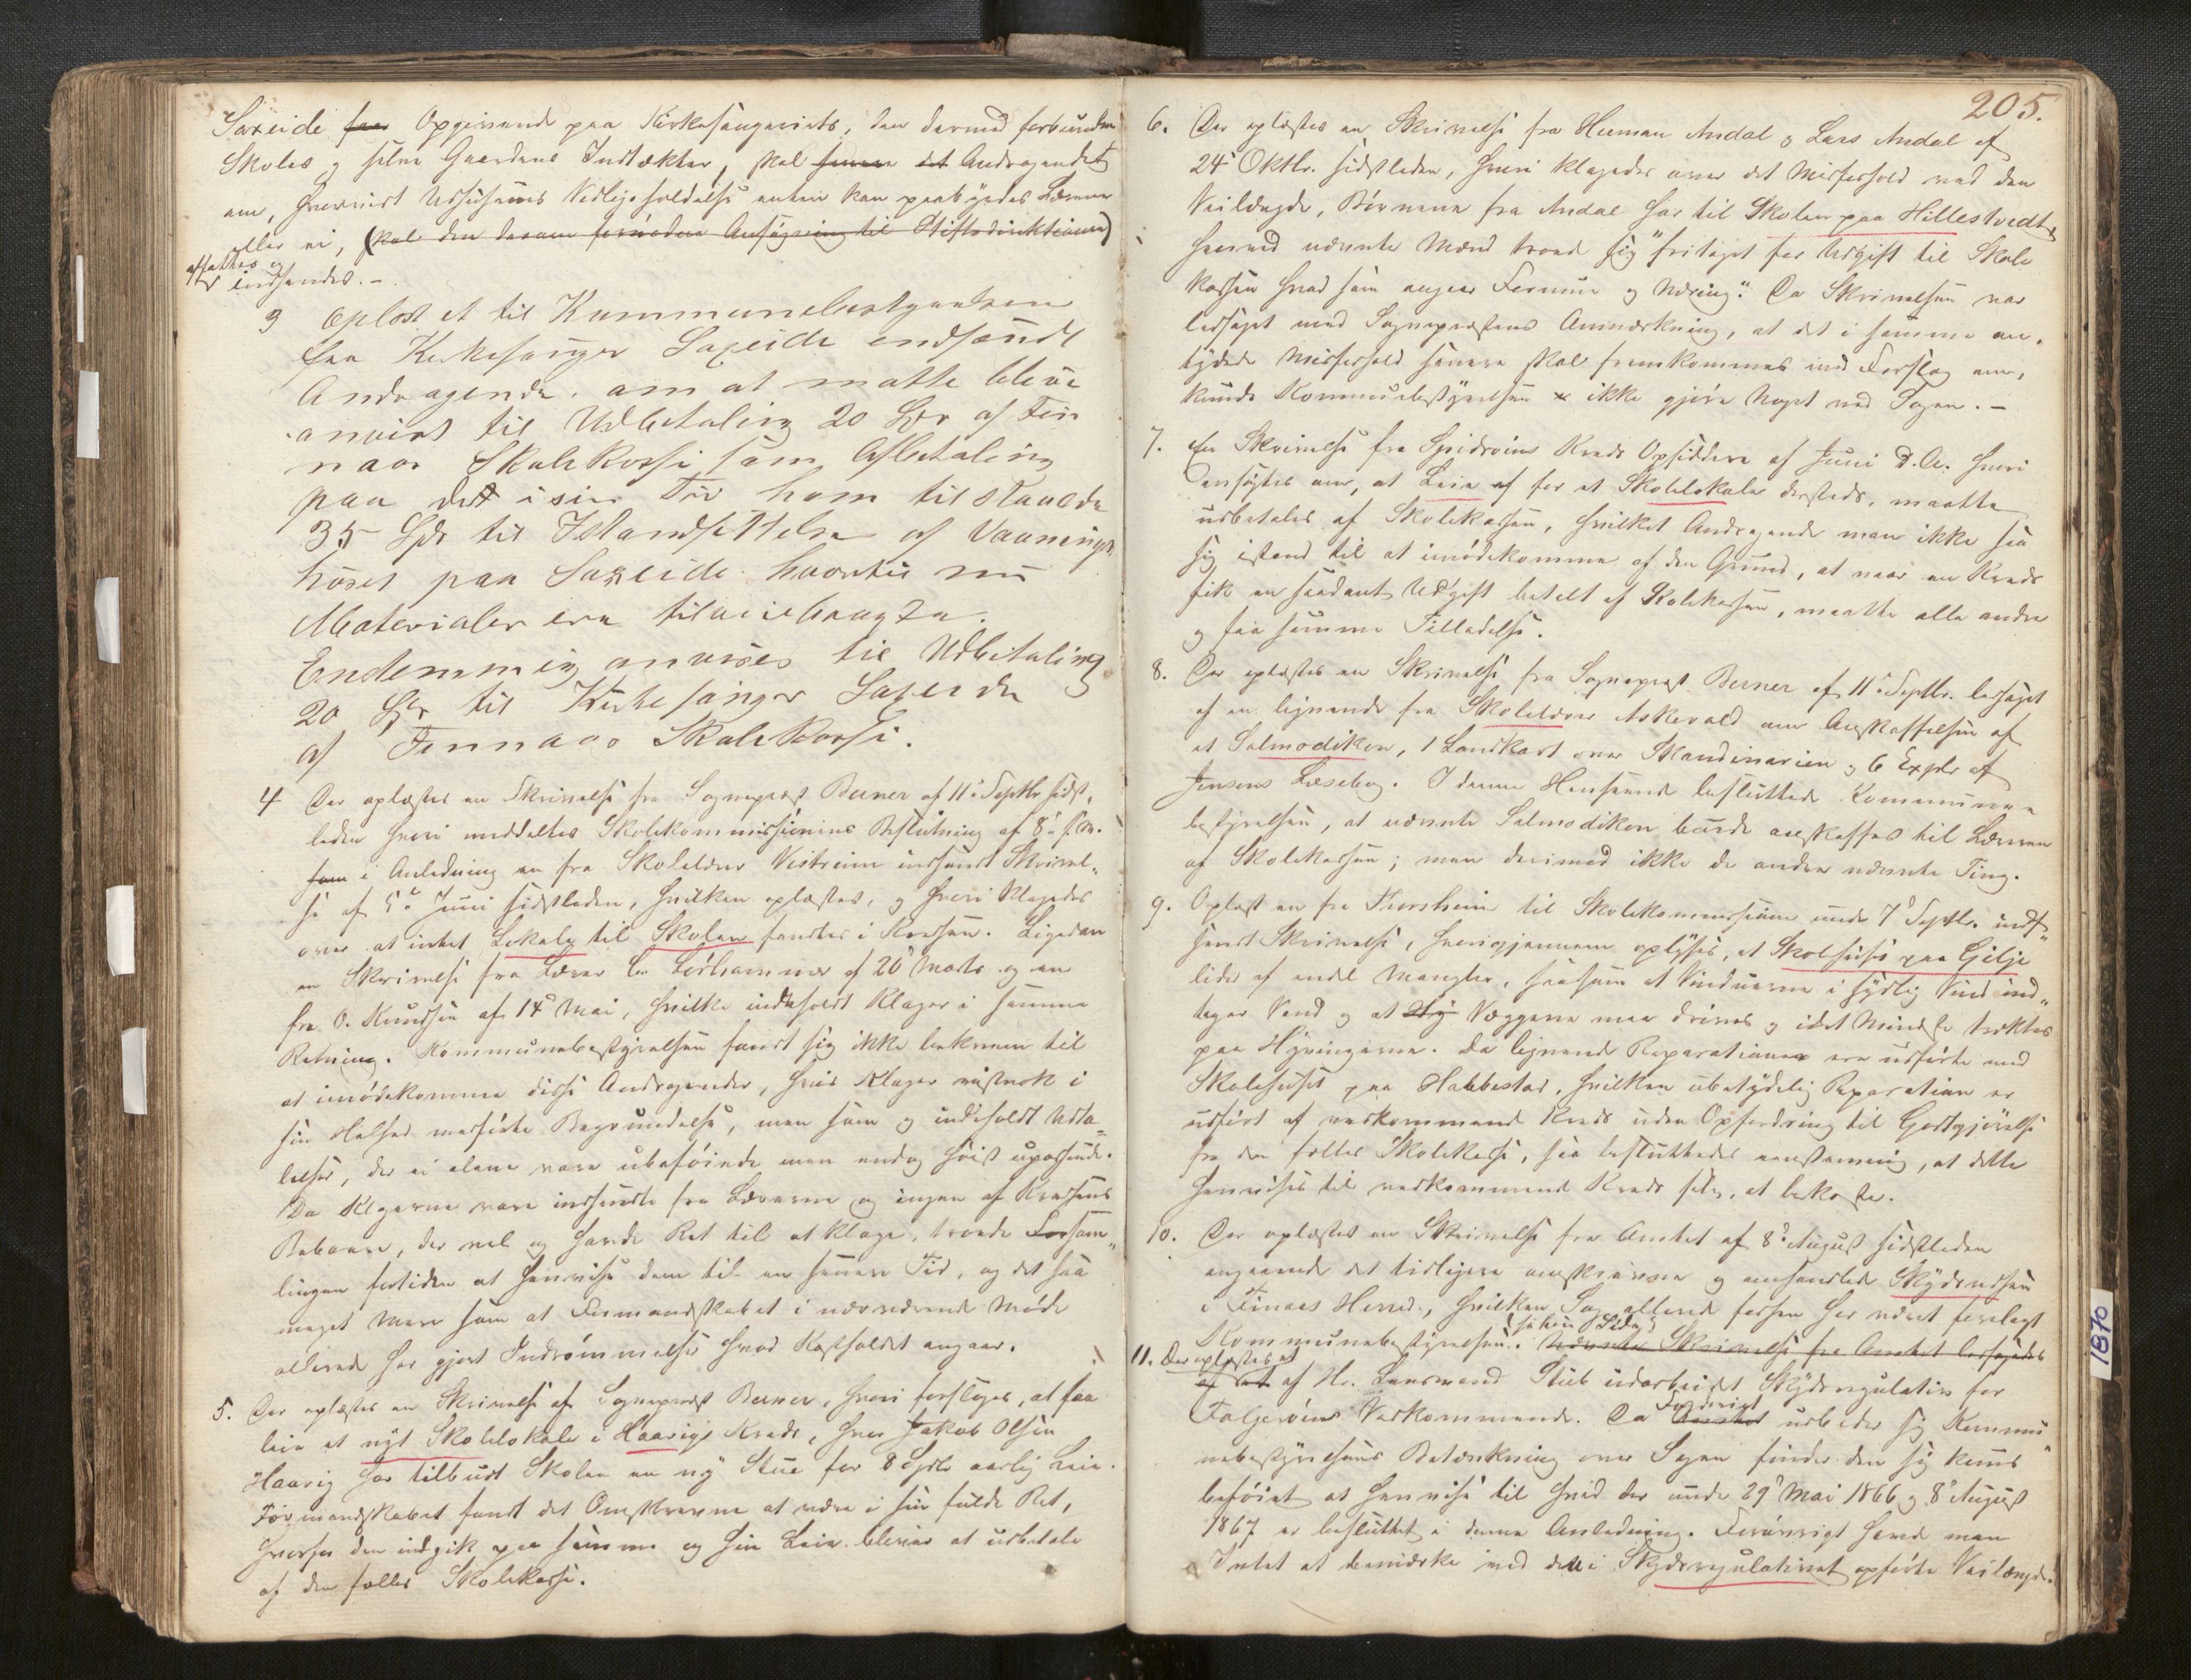 Saxeide faar Opgivende paa Kirkesangeriets, den dermed forbundne
Skoles og selve Gaardens Indtækter, skal senere det Andragendet
om, hvorvidt Udhusenes Vedligeholdelse enten kan paabydes Læreren
eller ei, (skal den derom fornødne Ansøgning til Stiftsdirektionen)
affattes og
indsendes. -
3 Oplæst et til Kommunebestyrelsen
fra Kirkesanger Saxeide indsendt
Andragende, om at maatte blive
anvist til Udbetaling 20 Spd af Fin
naas Skolekasse som Afbetaling
paa det i sin Tid ham tilstaaede
35 Spd til Istandsettelse af Vaanings
huset paa Saxeide hvortil nu
Materialer ere tilveiebragte.
Endemmig anvises til Udbetaling
20 Spd til Kirkesanger Saxeide
af Finnaas Skolekasse.
4 Der oplæstes en Skrivelse fra Sogneprest Berner af 11te Septbr sidst-
leden hvori meddeltes Skolekommissionens Beslutning af 8de s. M.
som i Anledning en fra Skolelærer Vestreim indsendt Skrivel-
se af 5te Juni sidstleden, hvilken oplæstes, og hvori klagedes
over at intet Lokale til Skolen fandtes i Kredsen. Ligedan
en Skrivelse fra Lærer Lørhammer af 26 Marts og en
fra O. Knudsen af 14de Mai, hvilke indeholdt Klager i samme
Retning. Kommunebestyrelsen fandt sig ikke bekvem til
at imødekomme disse Andragender, hvis Klager vistnok i
sin Helhed medførte Begrundelse, men som og indeholdt Udta-
lelser, der ei alene vare ubeføiede men endog høist upassende.
Da Klagerne vare indsendte fra Lærerne og ingen af Kredsens
Beboere, der vel og havde Ret til at klage, troede Forsam-
lingen fortiden at henvise dem til en senere Tid, og det saa
meget mere som at Formandskabet i nærværende Møde
allerede har gjort Indrømmelser hvad Kostholdet angaar.
5. Der oplæstes en Skrivelse af Sogneprest Berner, hvori forsloges, at faa
leie et nyt Skolelokale i Haavigs Kreds, hvor Jakob Olsen
Haavig har tilbudt Skolen en ny Stue for 8 Spdlr aarlig Leie.
Formandskabet fandt det Omskrevne at være i sin fulde Ret,
hvorfor den indgik paa samme og hin Leie bliver at udbetale
af den fælles Skolekasse.
205.
6. Der oplæstes en Skrivelse fra Herman Andal og Lars Andal af
24de Oktbr. sidstleden, hvori klagedes over det Misforhold ved den
Veilængde, Børnene fra Andal har til Skolen paa Hillestvedt,
hvorved nævnte Mænd troede sig "fritaget for Udgift til Skole
kassen hvad som angaar Formue og Næring." Da Skrivelsen var
ledsaget med Sogneprestens Anmærkning, at det i samme an-
tydede Misforhold senere skal fremkommes med Forslag om,
kunde Kommunebestyrelsen ikke gjøre Noget ved Sagen. -
7. En Skrivelse fra Spidsøens Kreds Opsiddere af Juni d. A. hvori
ansøgtes om, at Leie af for et Skolelokale dersteds, maatte
udbetales af Skolekassen, hvilket Andragende man ikke saa
sig istand til at imødekomme af den Grund, at naar en Kreds
fik en saadant Udgift betalt af Skolekassen, maatte alle andre
og faa samme Tilladelse.
8. Der oplæstes en Skrivelse fra Sogneprest Berner af 11te Septbr. ledsaget
af en lignende fra Skolelærer Askevold om Anskaffelsen af
et Salmodikon, 1 Landkart over Skandinavien og 6 Expl. af
Jensens Læsebog. I denne Henseende besluttede Kommune-
bestyrelsen, at nævnte Salmodikon burde anskaffes til Læreren
af Skolekassen; men derimod ikke de andre nævnte Ting.
9. Oplæst en fra Thorsheim til Skolekommissionen under 7de Septbr. ind-
sendt Skrivelse, hvorigjennem oplyses, at Skolehuset paa Gilje
lider af endel Mangler, saasom at Vinduerne i sydlig Vind ind-
tager Vand og at Væggene maa drives og idet mindste tækkes
paa Hjørningerne. Da lignende Reparationer ere udførte med
Skolehuset paa Habbestad, hvilken ubetydelig Reparation er
udført af vedkommende Kreds uden Opfordring til Godtgjørelse
fra den fælles Skolekasse, saa besluttedes eenstemmig, at dette
henvises til vedkommende Kreds selv, at bekoste.
10. Der oplæstes en Skrivelse fra Amtet af 8de August sidstleden
angaaende det tidligere omskrevne og omhandlede Skydsvæsen
i Finaas Herred, hvilken Sag allerede forhen har været forelagt
Kommunebestyrelsen. Nævnte Skrivelse fra Amtet ledsagedes
11. Der oplæstes et
af et af Hr. Lensmand Stub udarbeidet Skydsregulativ for
Folgerøens Vedkommende. Da Fogderiet Amtet udbeder sig Kommu
nebestyrelsens Betænkning over Sagen finder den sig kuns
beføiet at henvise til hvad der under 29de Mai 1866 og 8de August
1867 er besluttet i denne Anledning. Forøvrigt havde man
Intet at bemærke ved den i Skydsregulativet opførte Veilængde.
1870